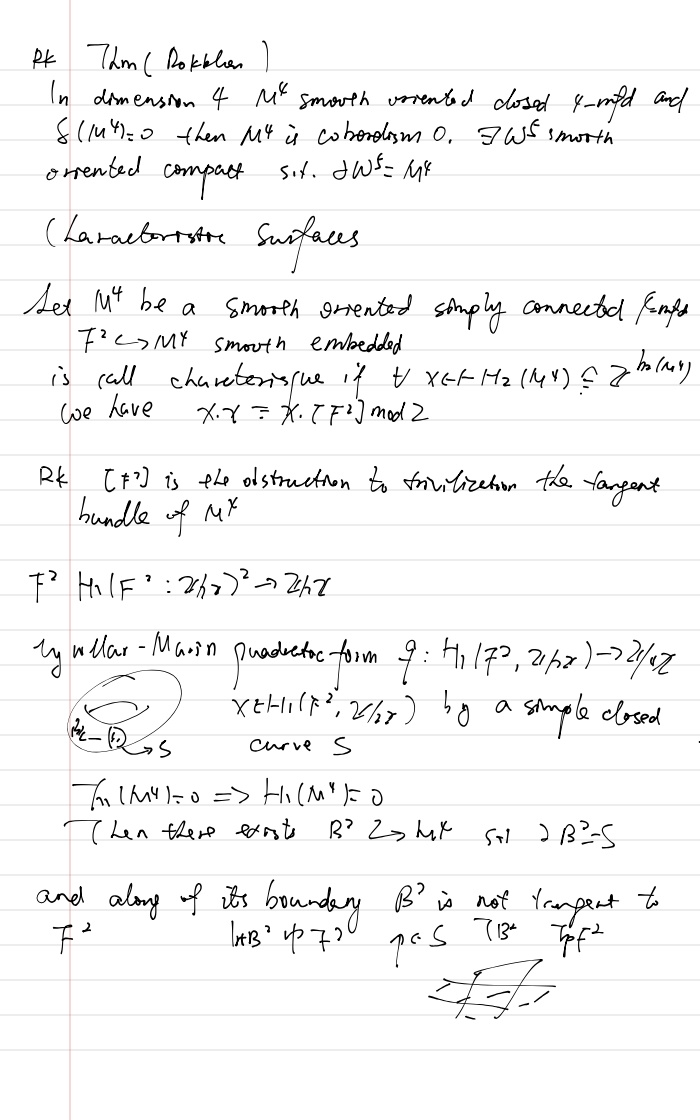 Rk Thm (Rokhlin)
In dimension 4 M⁴ smooth oriented closed 4-mfd and
δ(M⁴)=0 then M⁴ is cobordism 0. ∃W⁵ smooth
oriented compact s.t. ∂W⁵ = M⁴
Characteristic Surfaces
Let M⁴ be a smooth oriented simply connected 4-mfd
F² ↪ M⁴ smooth embedded
is call if ∀ x ∈ H₂(M⁴) ≅ Z^{b₂(M⁴)}
we have x.x ≡ x.[F²] mod 2
Rk [F²] is the obstruction to trivilization the tangent
bundle of M⁴
F² H₁(F²: Z/2Z)² → Z/2Z
-Marin quadratic form q: H₁(F², Z/2Z) → Z/4Z
x ∈ H₁(F², Z/2Z) by a simple closed
→S curve S
π₁(M⁴)=0 => H₁(M⁴)=0
Then there exists B² ↪ M⁴ s.t ∂B²=S
and along of its boundary B² is not tangent to
F² int B² ⋔ F² p ∈ S TB² TpF²